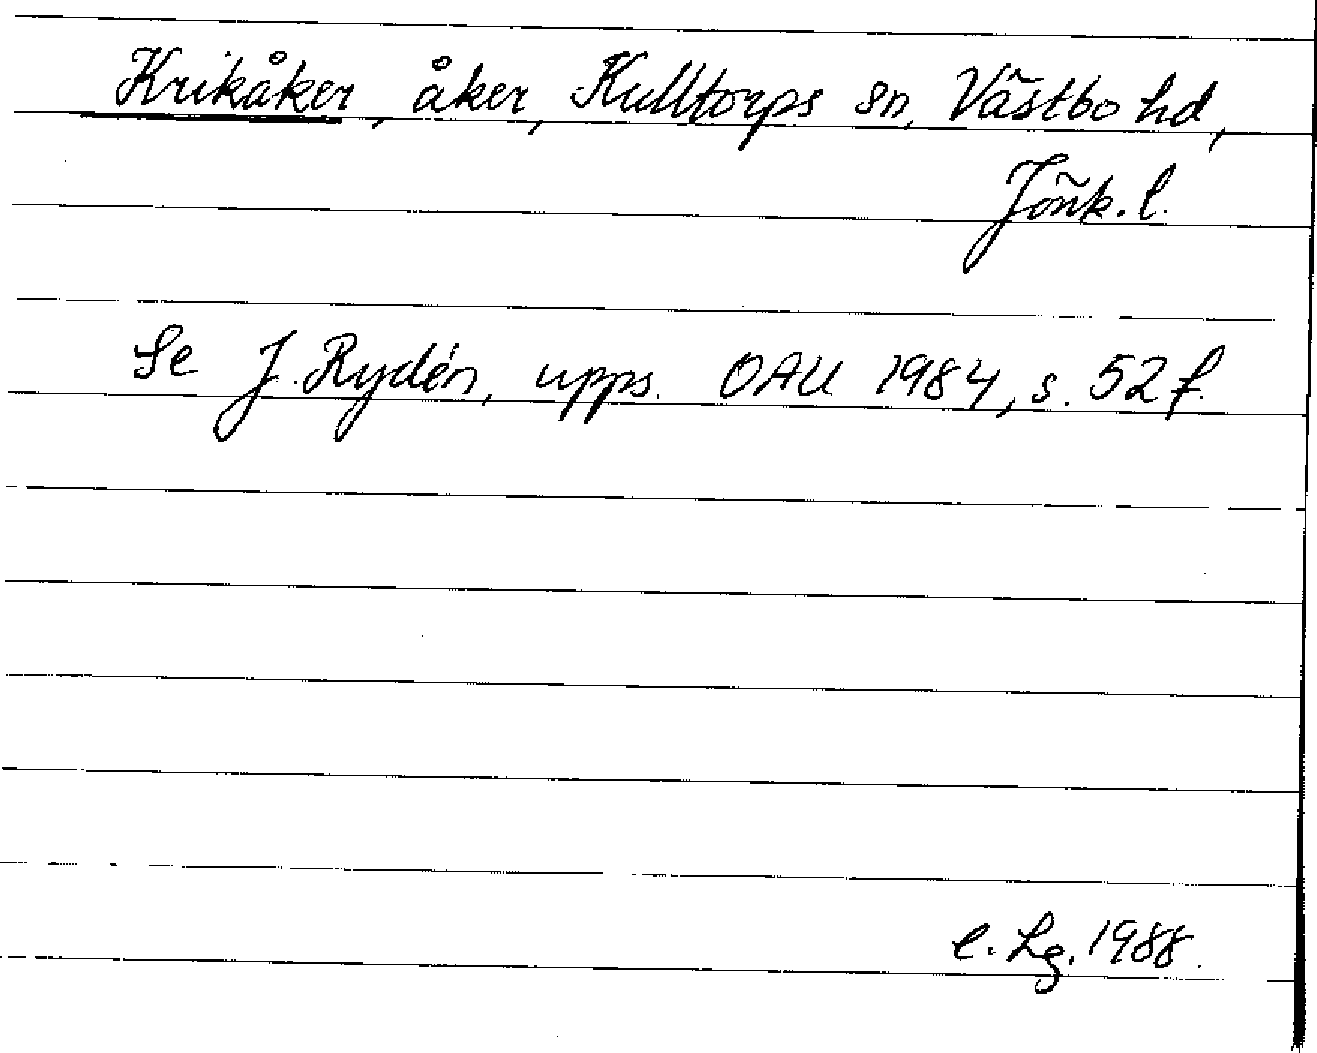 Krikåker, åker, Kulltorps sn, Västbo hd,
Jönk. l.
Se J. Rydén, upps. OAU 1984, s. 52 f.
e. Lg. 1988.